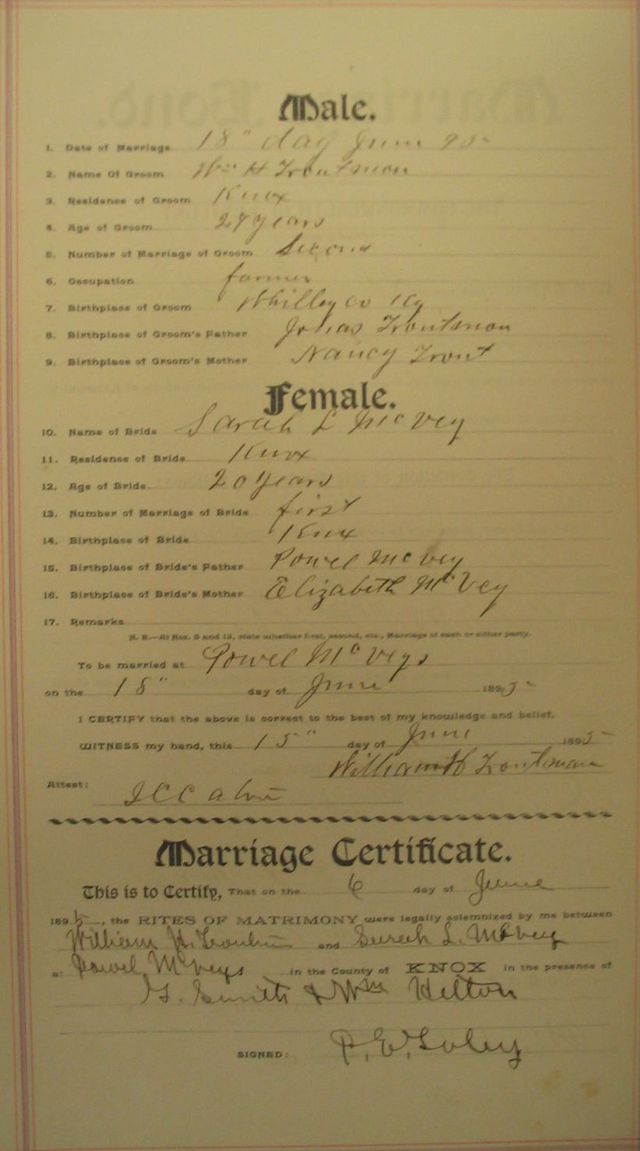 Male.
1. Date of Marriage 18" day June 95
2. Name Of Groom Wm H Troutman
3. Residence of Groom Knox
4. Age of Groom years
5. Number of Marriage of Groom Second
6. Occupation farmer
7. Birthplace of Groom Whitley co Ky
8. Birthplace of Groom's Father Jonas Troutman
9. Birthplace of Groom's Mother Nancy Trout
Female.
10. Name of Bride Sarah L McVey
11. Residence of Bride Knox
12. Age of Bride 20 years
13. Number of Marriage of Bride first
14. Birthplace of Bride Knox
15. Birthplace of Bride's Father Powel McVey
16. Birthplace of Bride's Mother Elizabeth McVey
17. Remarks
N. B.—At Nos. 5 and 13, state whether first, second, etc., Marriage of each or either party.
To be married at Powel McVeys
on the 18" day of June 1895
I CERTIFY that the above is correct to the best of my knowledge and belief.
WITNESS my hand, this 15" day of June 1895
William H Troutman
Attest:
Marriage Certificate.
This is to Certify, That on the 6 day of June
1895, the RITES OF MATRIMONY were legally solemnized by me between
William H. and Sareh L. McVey
at Powel McVeys in the County of KNOX in the presence of
Smith & Wm Helton
SIGNED: